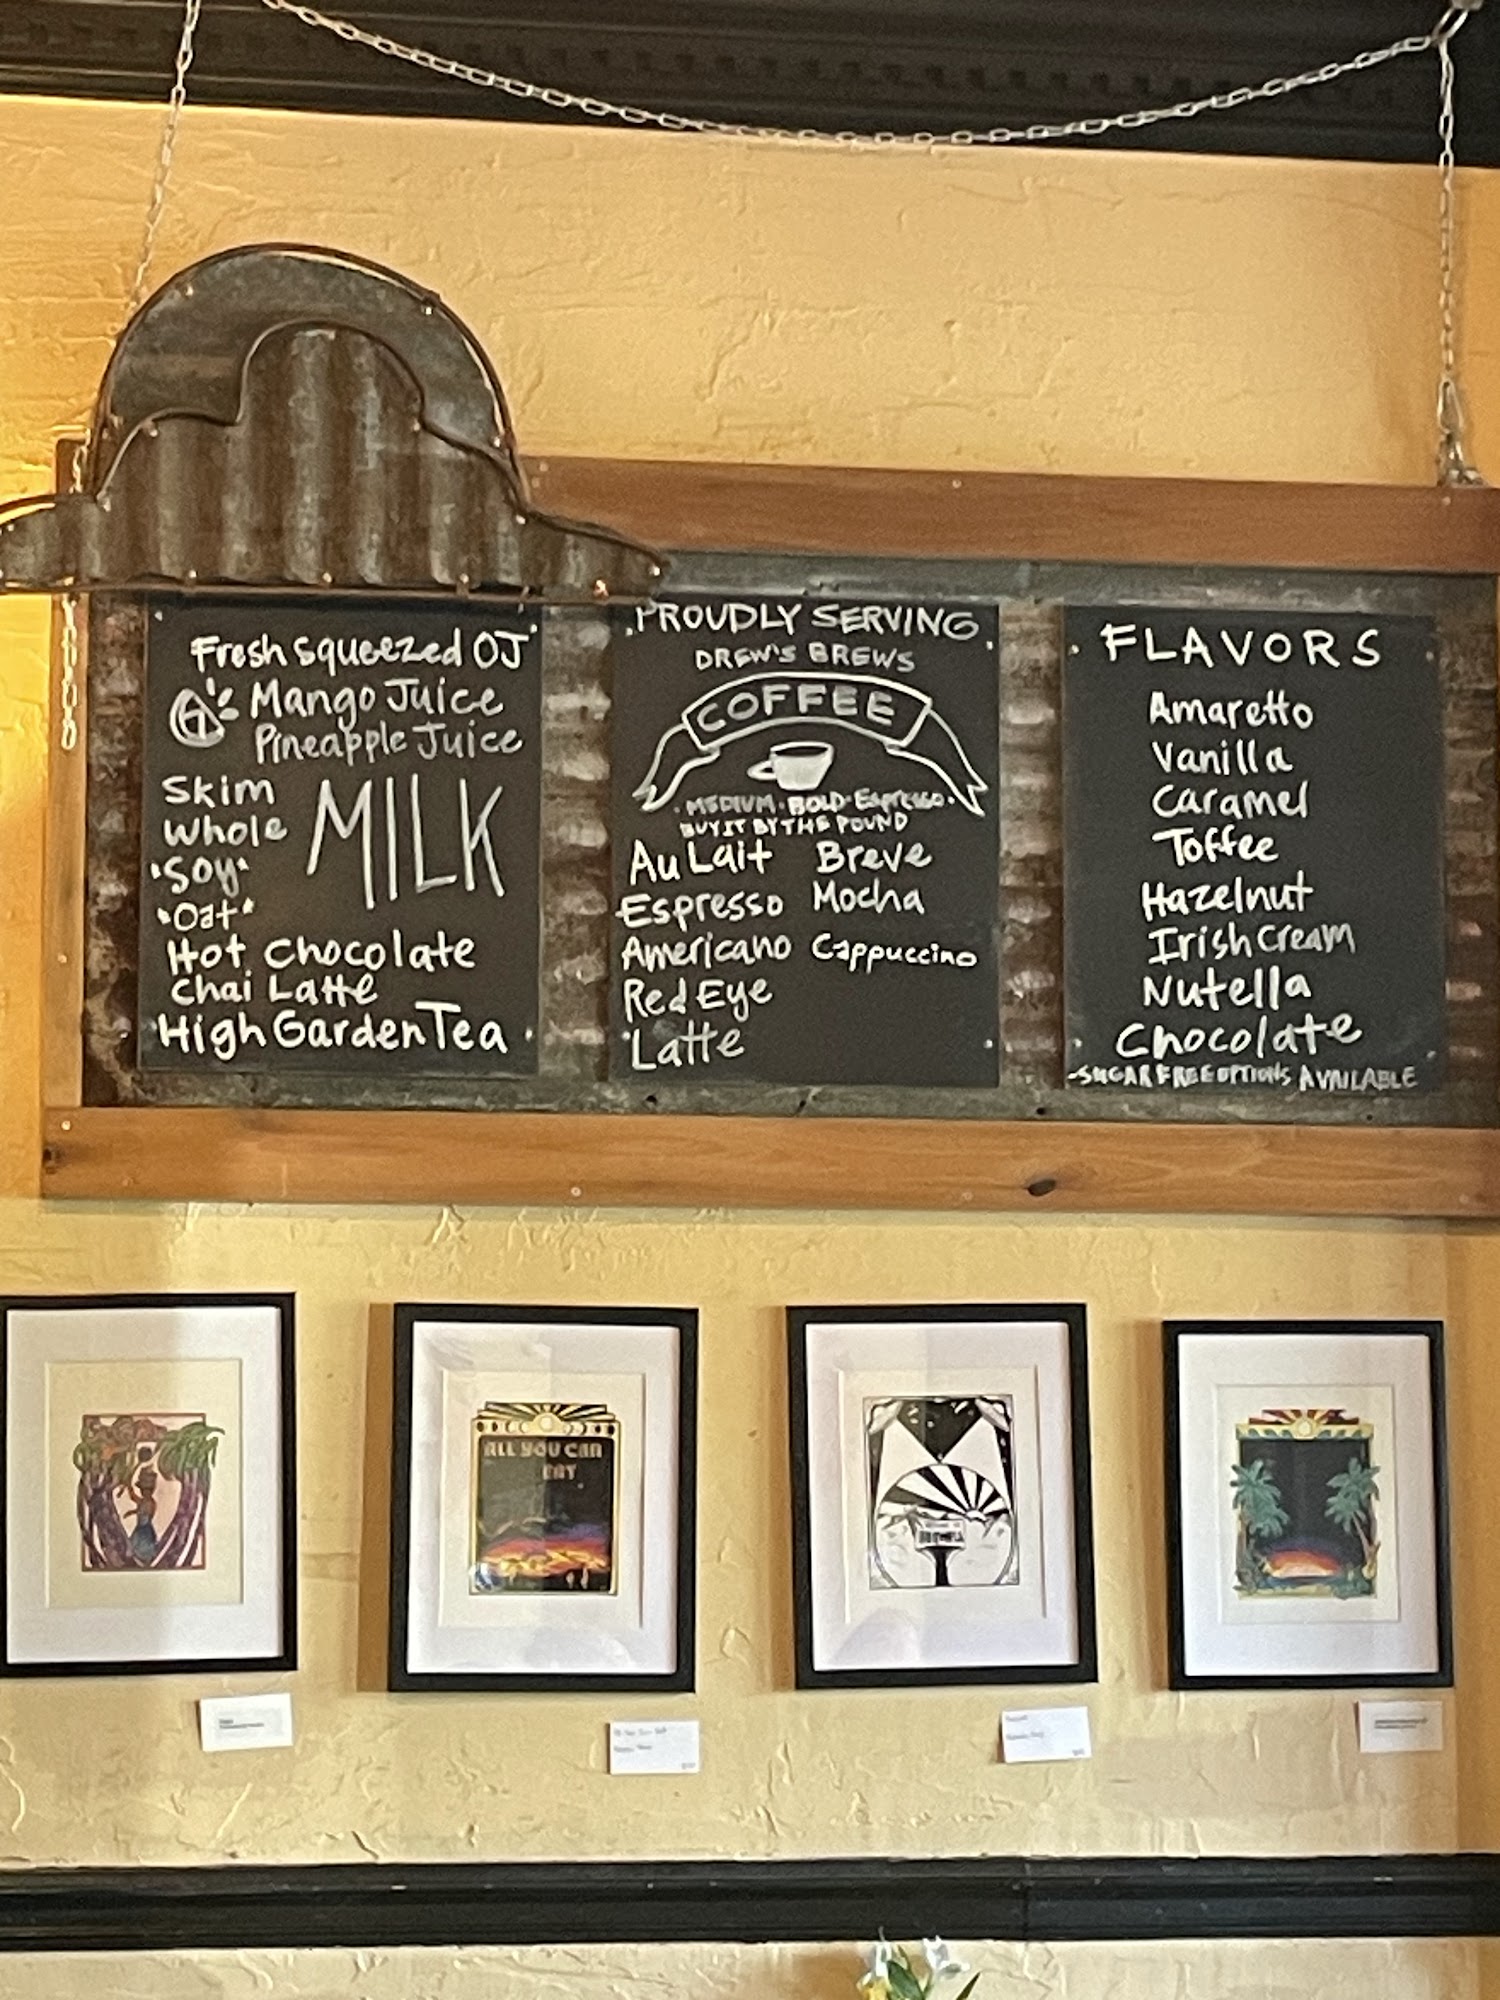 Fresh Squeezed OJ
Mango Juice
Pineapple Juice
Skim
Whole
MILK
*Soy*
*Oat*
Hot Chocolate
Chai Latte
High Garden Tea
PROUDLY SERVING
DREW'S BREWS
COFFEE
· MEDIUM · BOLD · Espresso ·
BUY IT BY THE POUND
Au Lait Breve
Espresso Mocha
Americano Cappuccino
Red Eye
Latte
FLAVORS
Amaretto
Vanilla
Caramel
Toffee
Hazelnut
Irish Cream
Nutella
Chocolate
-SUGAR FREE OPTIONS AVAILABLE
ALL YOU CAN
EAT